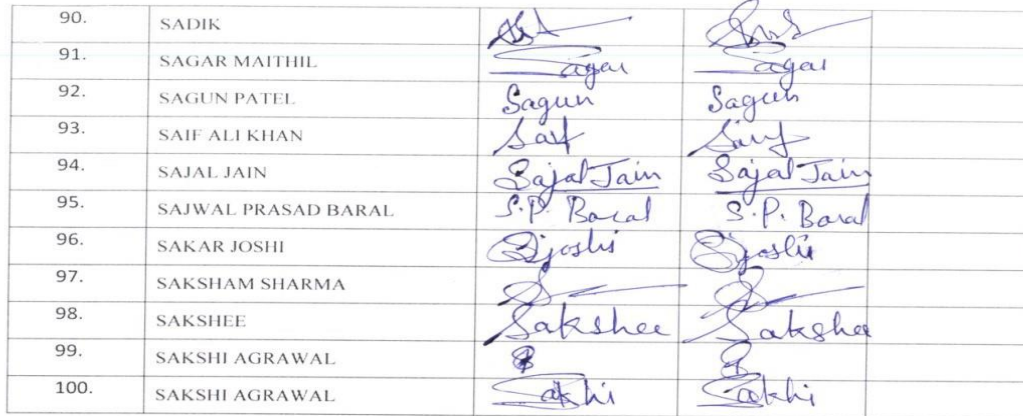 90. SADIK
91. SAGAR MAITHIL Sagar Sagar
92. SAGUN PATEL Sagun Sagun
93. SAIF ALI KHAN Saif Saif
94. SAJAL JAIN Sajal Jain Sajal Jain
95. SAJWAL PRASAD BARAL S.P. Baral S.P. Baral
96. SAKAR JOSHI Sjoshi Sjoshi
97. SAKSHAM SHARMA
98. SAKSHEE Sakshee Sakshee
99. SAKSHI AGRAWAL
100. SAKSHI AGRAWAL Sakshi Sakshi